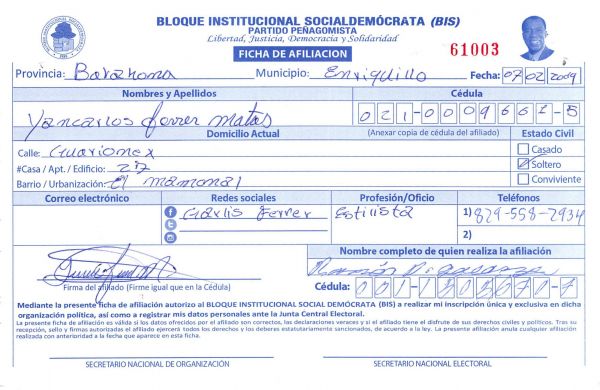 BLOQUE INSTITUCIONAL SOCIALDEMÓCRATA (BIS)
PARTIDO PEÑAGOMISTA
Libertad, Justicia, Democracia y Solidaridad
FICHA DE AFILIACION
61003
Provincia: Barahona Municipio: Enriquillo Fecha: 07 02 2009
Nombres y Apellidos Cédula
Yancarlos ferrer matas 021-0009667-5
Domicilio Actual (Anexar copia de cédula del afiliado) Estado Civil
Calle: Guarionex Casado
#Casa / Apt. / Edificio: 27 Soltero
Barrio / Urbanización: El mamonal Conviviente
Correo electrónico Redes sociales Profesión/Oficio Teléfonos
Garlis Ferrer Estilista 1) 829-558-2934
2)
Nombre completo de quien realiza la afiliación
Ramón
Firma del afiliado (Firme igual que en la Cédula) Cédula: 001-1305070-7
Mediante la presente ficha de afiliación autorizo al BLOQUE INSTITUCIONAL SOCIAL DEMÓCRATA (BIS) a realizar mi inscripción única y exclusiva en dicha
organización política, así como a registrar mis datos personales ante la Junta Central Electoral.
La presente ficha de afiliación es válida si los datos ofrecidos por el afiliado son correctos, las declaraciones veraces y si el afiliado tiene el disfrute de sus derechos civiles y políticos. Tras su
recepción, sello y firmas autorizadas el afiliado ejercerá todos los derechos y los deberes estatutariamente sancionados, de acuerdo a la ley. La presente afiliación anula cualquier afiliación
realizada con anterioridad a la fecha que aparece en esta ficha.
SECRETARIO NACIONAL DE ORGANIZACIÓN SECRETARIO NACIONAL ELECTORAL